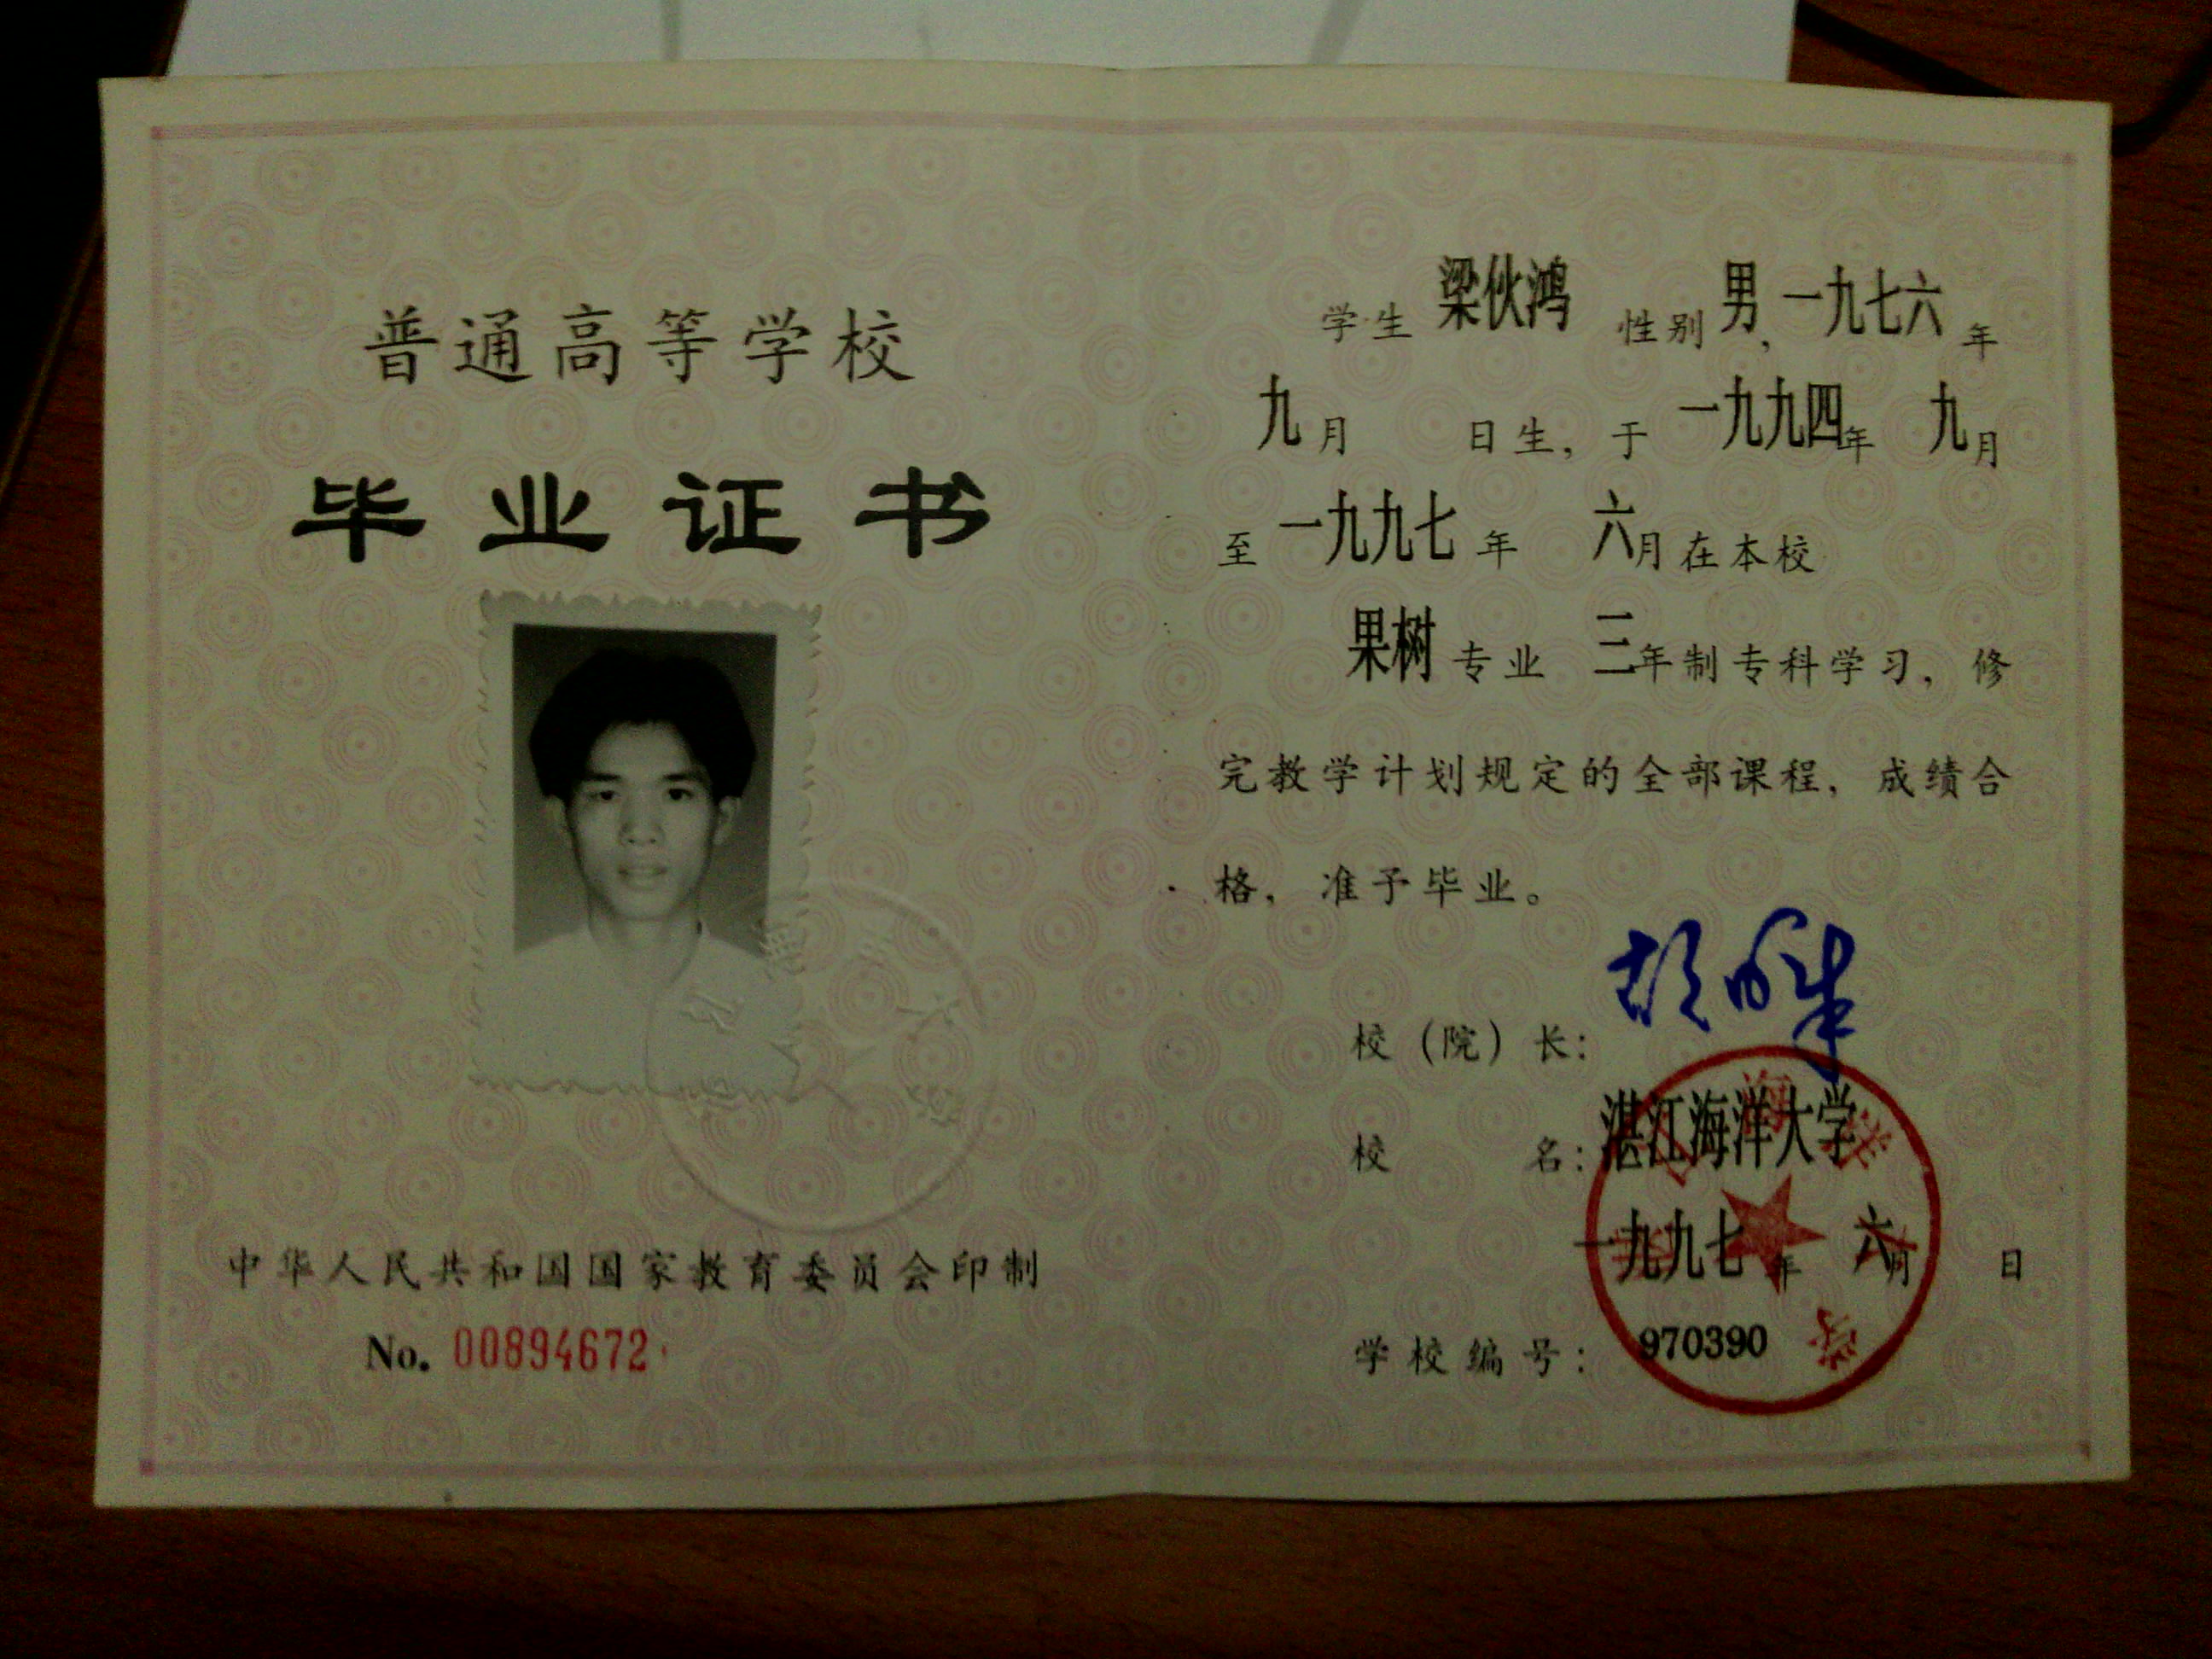 普通高等学校
毕业证书
中华人民共和国国家教育委员会印制
No. 00894672
学生 梁伙鸿 性别 男, 一九七六 年
九月 日生, 于 一九九四年 九月
至 一九九七 年 六月在本校
果树 专业 三年制专科学习, 修
完教学计划规定的全部课程, 成绩合
格, 准予毕业。
校(院)长:
校 名: 湛江海洋大学
一九九七 年 六月 日
学校编号: 970390